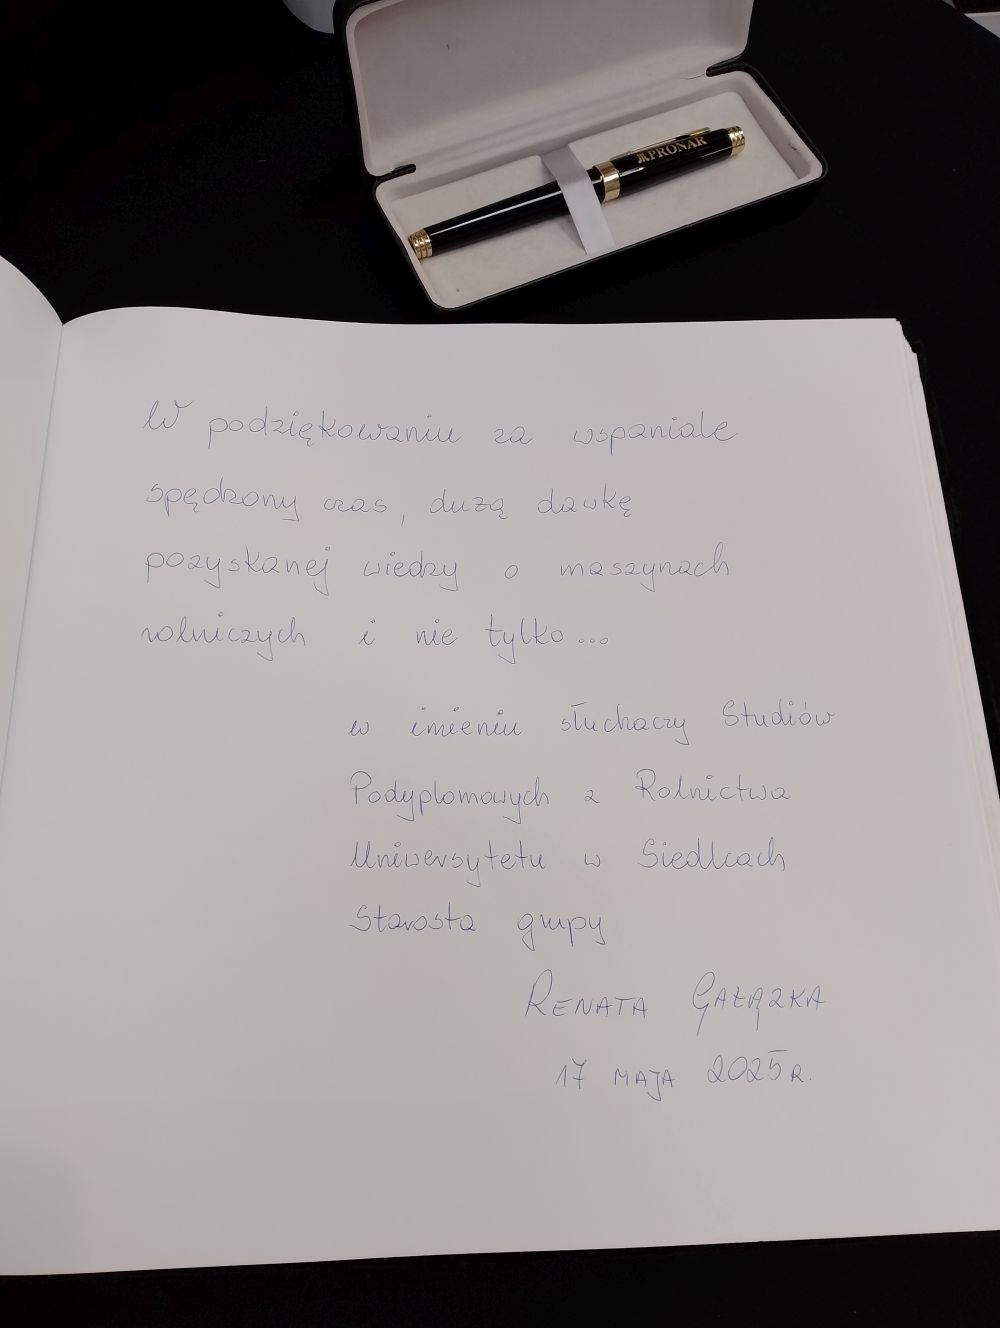 PRONAR
W podziękowaniu za wspaniale
spędzony czas, dużą dawkę
pozyskanej wiedzy o maszynach
rolniczych i nie tylko...
w imieniu słuchaczy Studiów
Podyplomowych z Rolnictwa
Uniwersytetu w Siedlcach
Starosta grupy
RENATA GAŁĄZKA
17 MAJA 2025R.